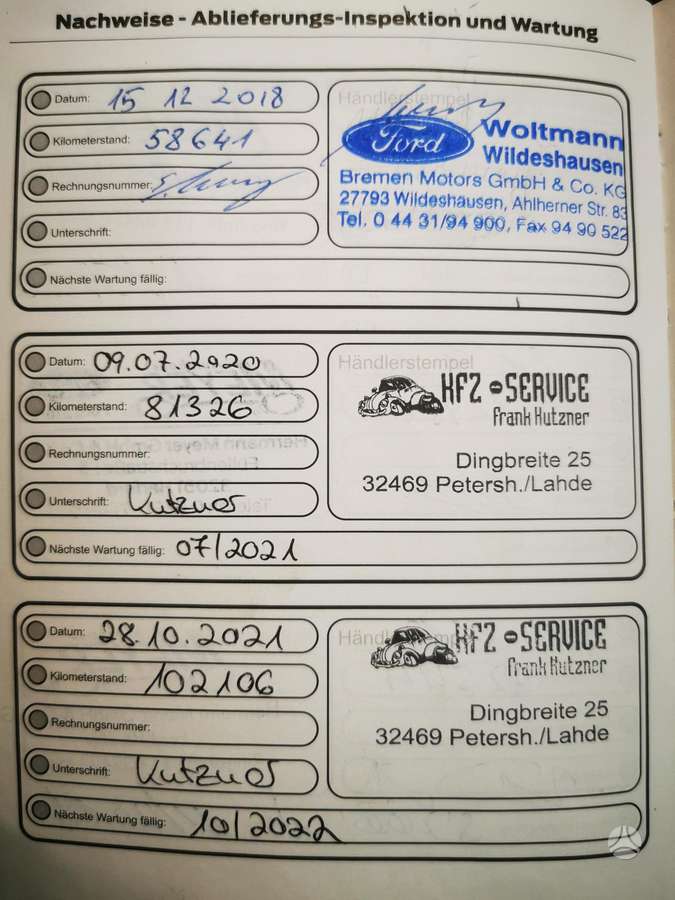 Nachweise - Ablieferungs-Inspektion und Wartung
Datum: 15 12 2018
Kilometerstand: 58641
Rechnungsnummer:
Unterschrift:
Nächste Wartung fällig:
Händlerstempel
Ford
Woltmann
Wildeshausen
Bremen Motors GmbH & Co. KG
27793 Wildeshausen, Ahlherner Str. 83
Tel. 0 44 31/94 900, Fax 94 90 522
Datum: 09.07.2020
Kilometerstand: 81326
Rechnungsnummer:
Unterschrift: Kutzner
Nächste Wartung fällig: 07/2021
Händlerstempel
KFZ-SERVICE
Frank Kutzner
Dingbreite 25
32469 Petersh./Lahde
Datum: 28.10.2021
Kilometerstand: 102106
Rechnungsnummer:
Unterschrift: Kutzner
Nächste Wartung fällig: 10/2022
Händlerstempel
KFZ-SERVICE
Frank Kutzner
Dingbreite 25
32469 Petersh./Lahde